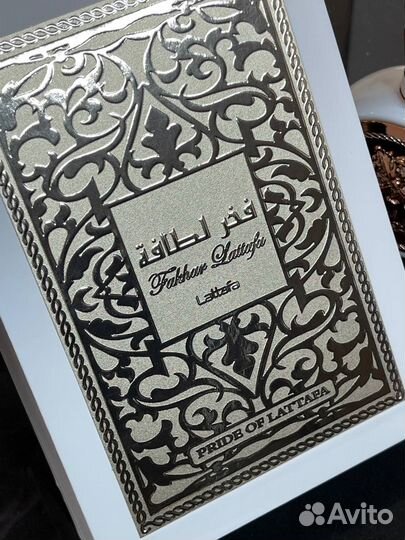 فخر لطافة
Fakhar Lattafa
Lattafa
PRIDE OF LATTAFA
Avito